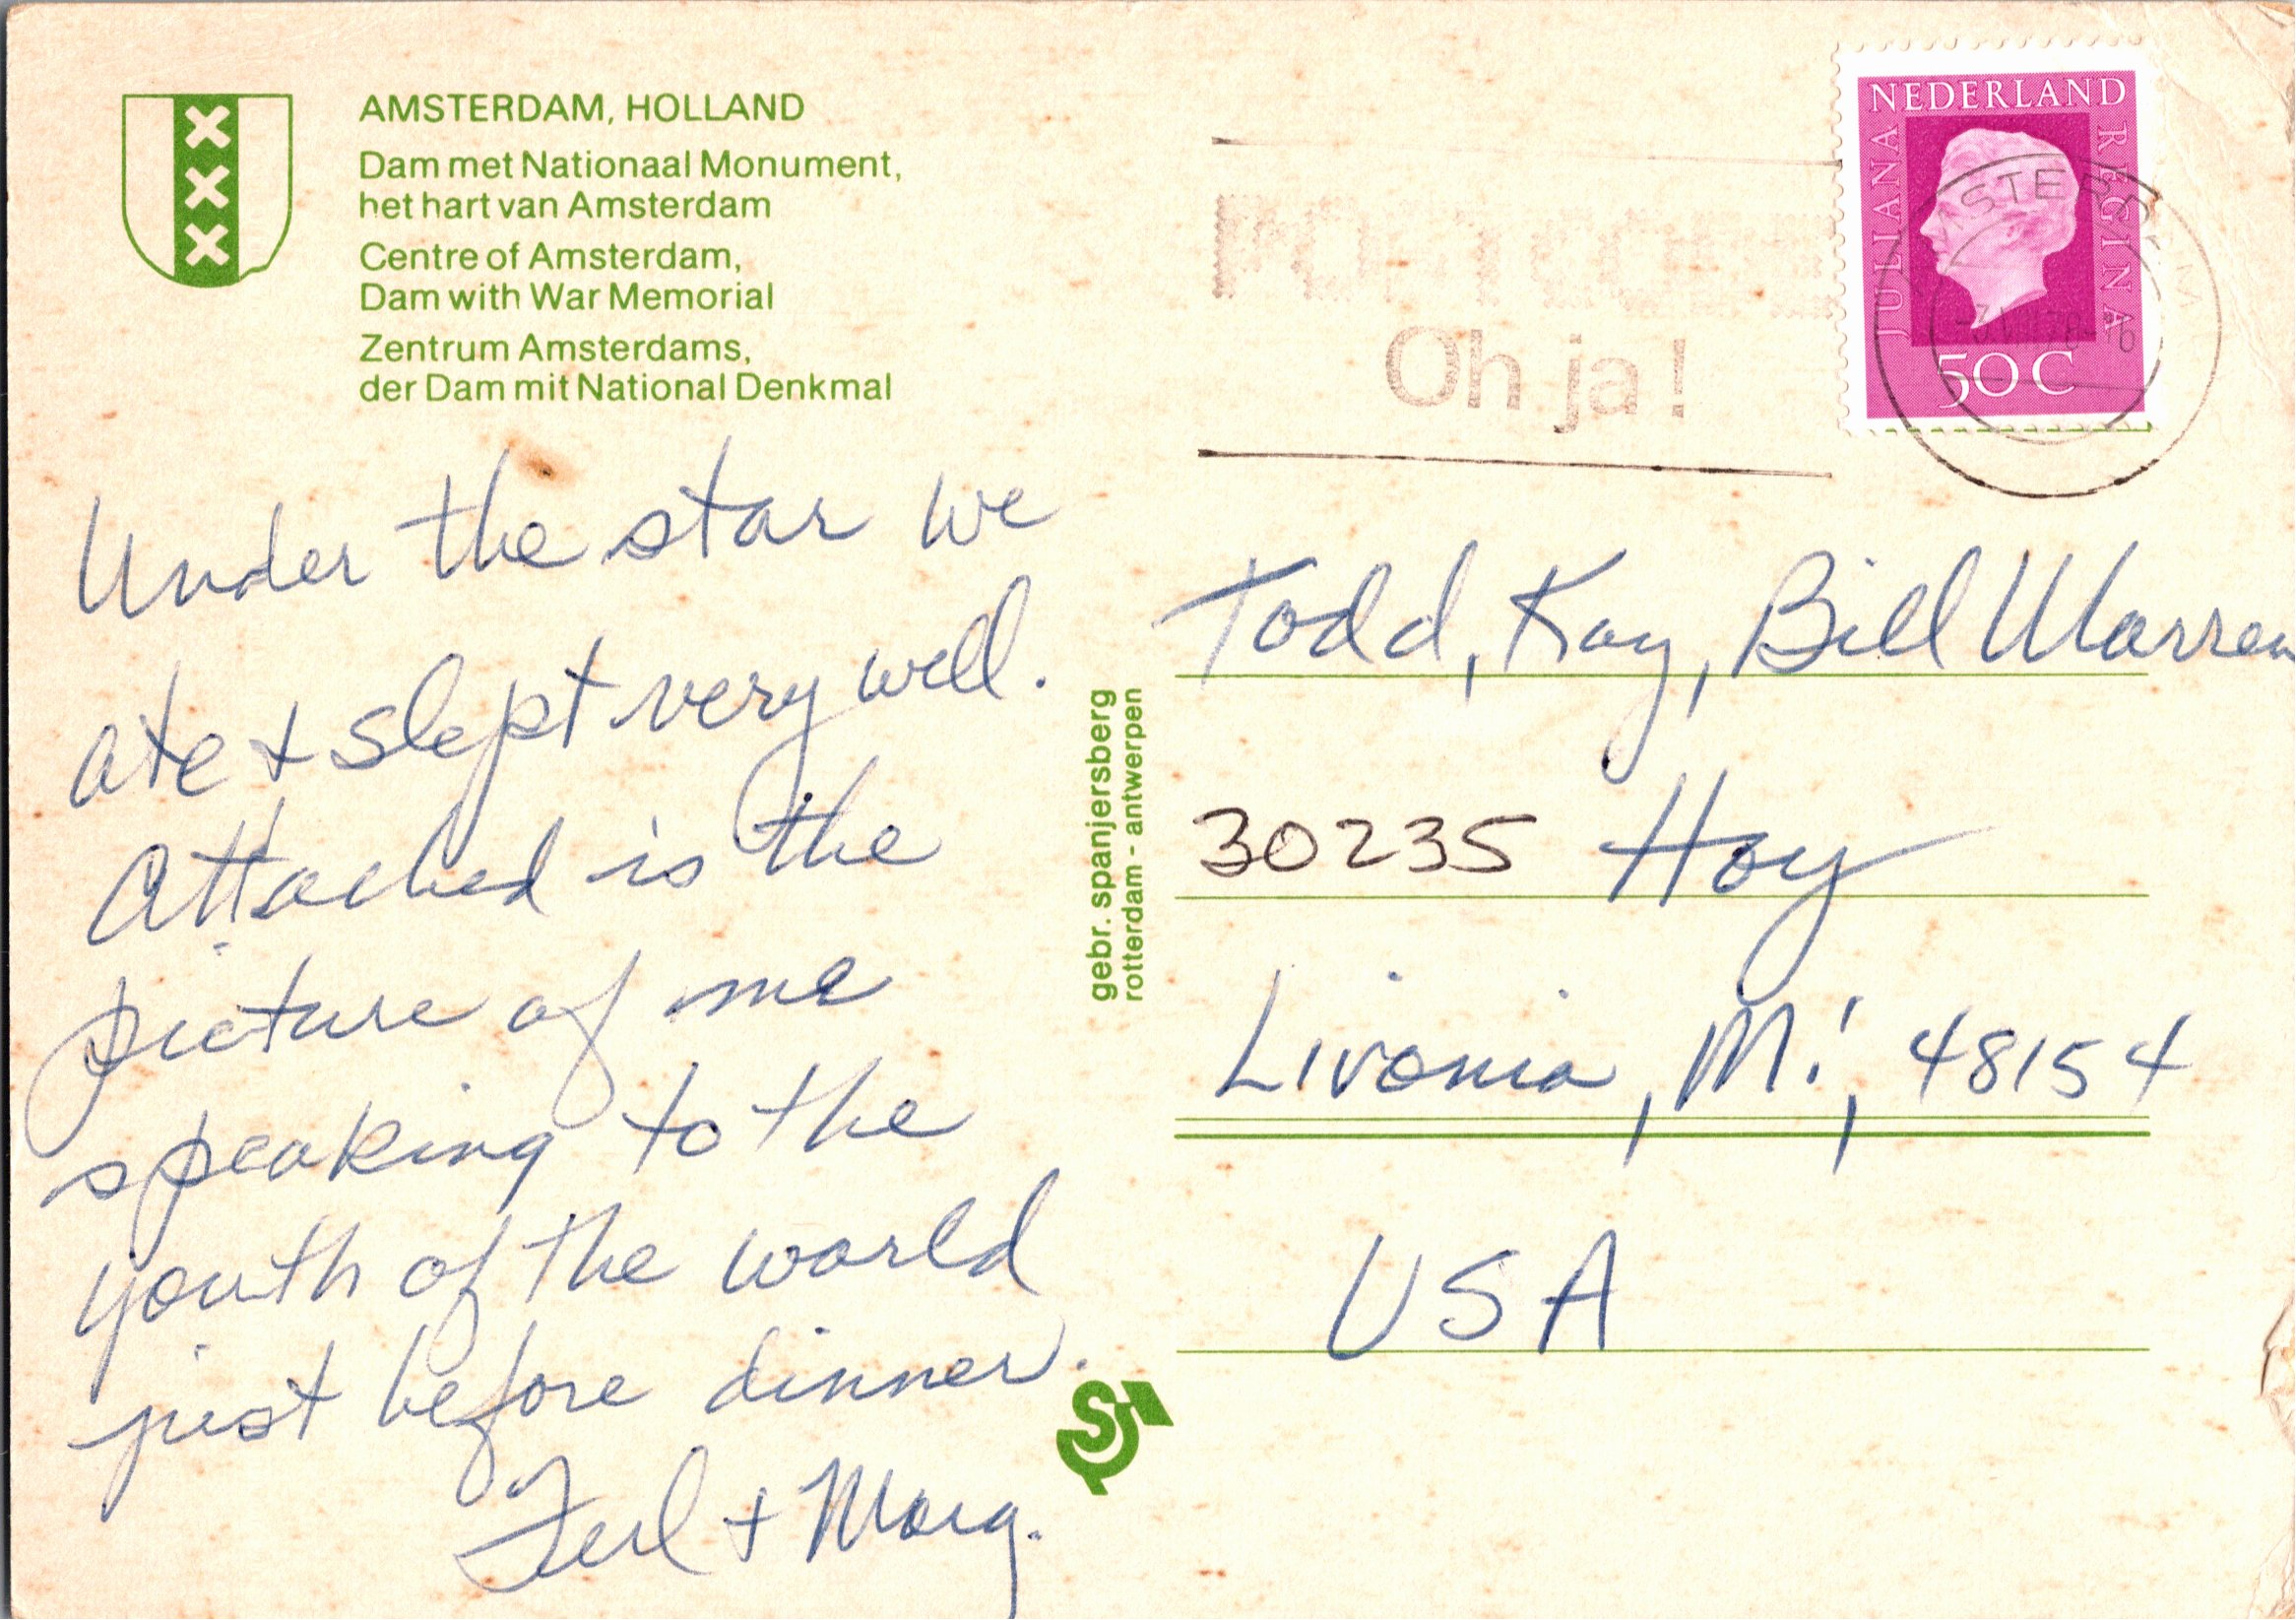 AMSTERDAM, HOLLAND
Dam met Nationaal Monument,
het hart van Amsterdam
Centre of Amsterdam,
Dam with War Memorial
Zentrum Amsterdams,
der Dam mit National Denkmal
Under the star we
ate + slept very well.
Attached is the
picture of me
speaking to the
youth of the world
just before dinner.
+ Marg.
gebr. spanjersberg
rotterdam - antwerpen
Oh ja!
NEDERLAND
JULIANA
REGINA
50 C
Todd, Kay, Bill Warren
30235 Hoy
Livonia, Mi, 48154
USA